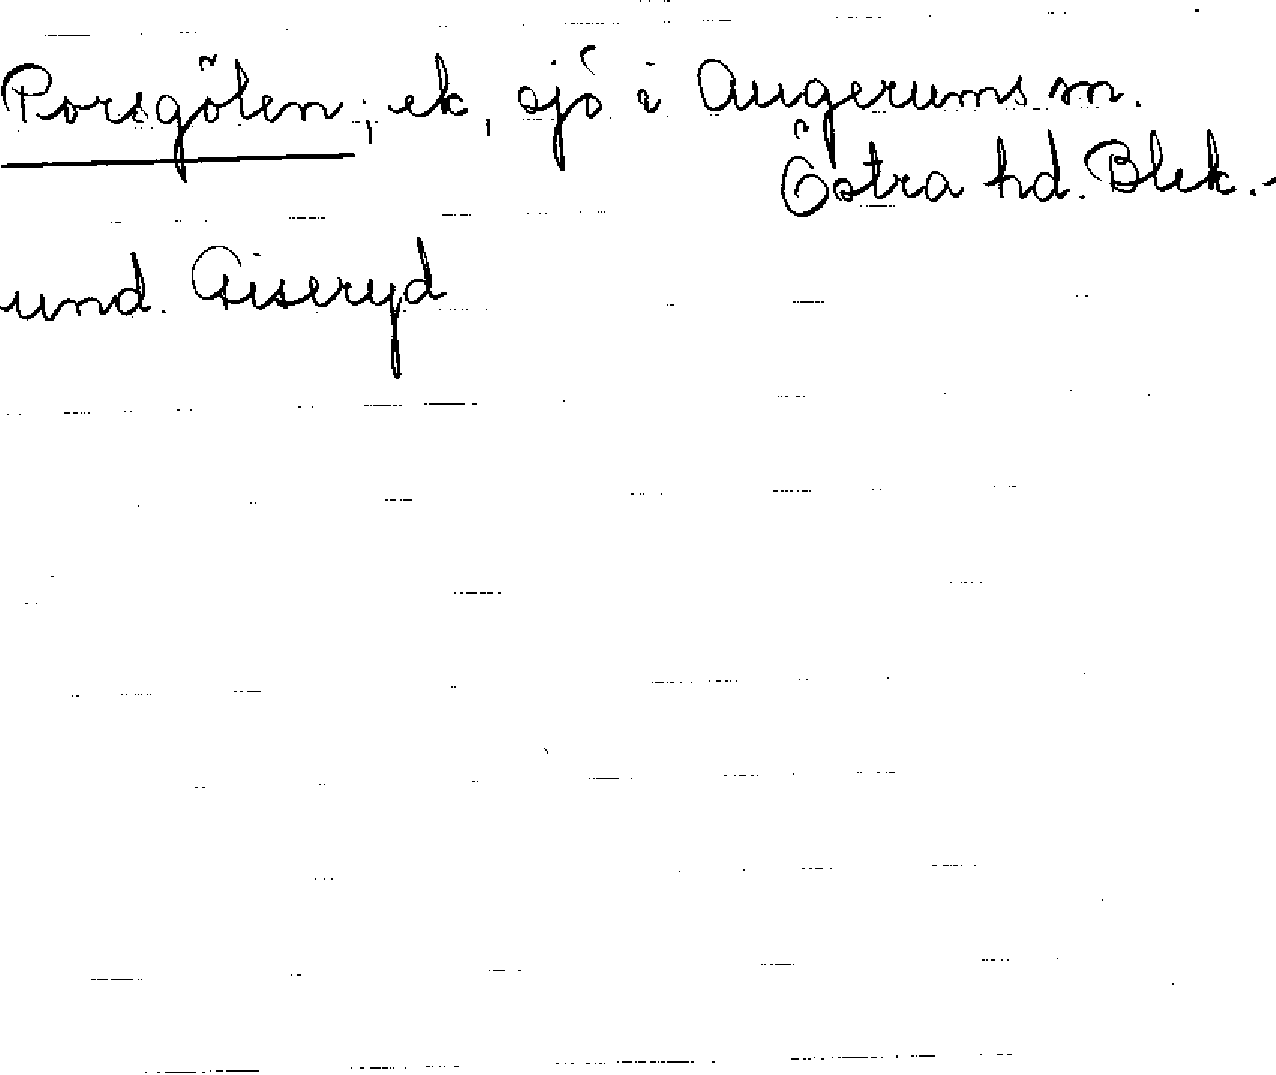 Porsgölen, ek, sjö i Augerums sn.
Östra hd. Blek.
und. Aiseryd